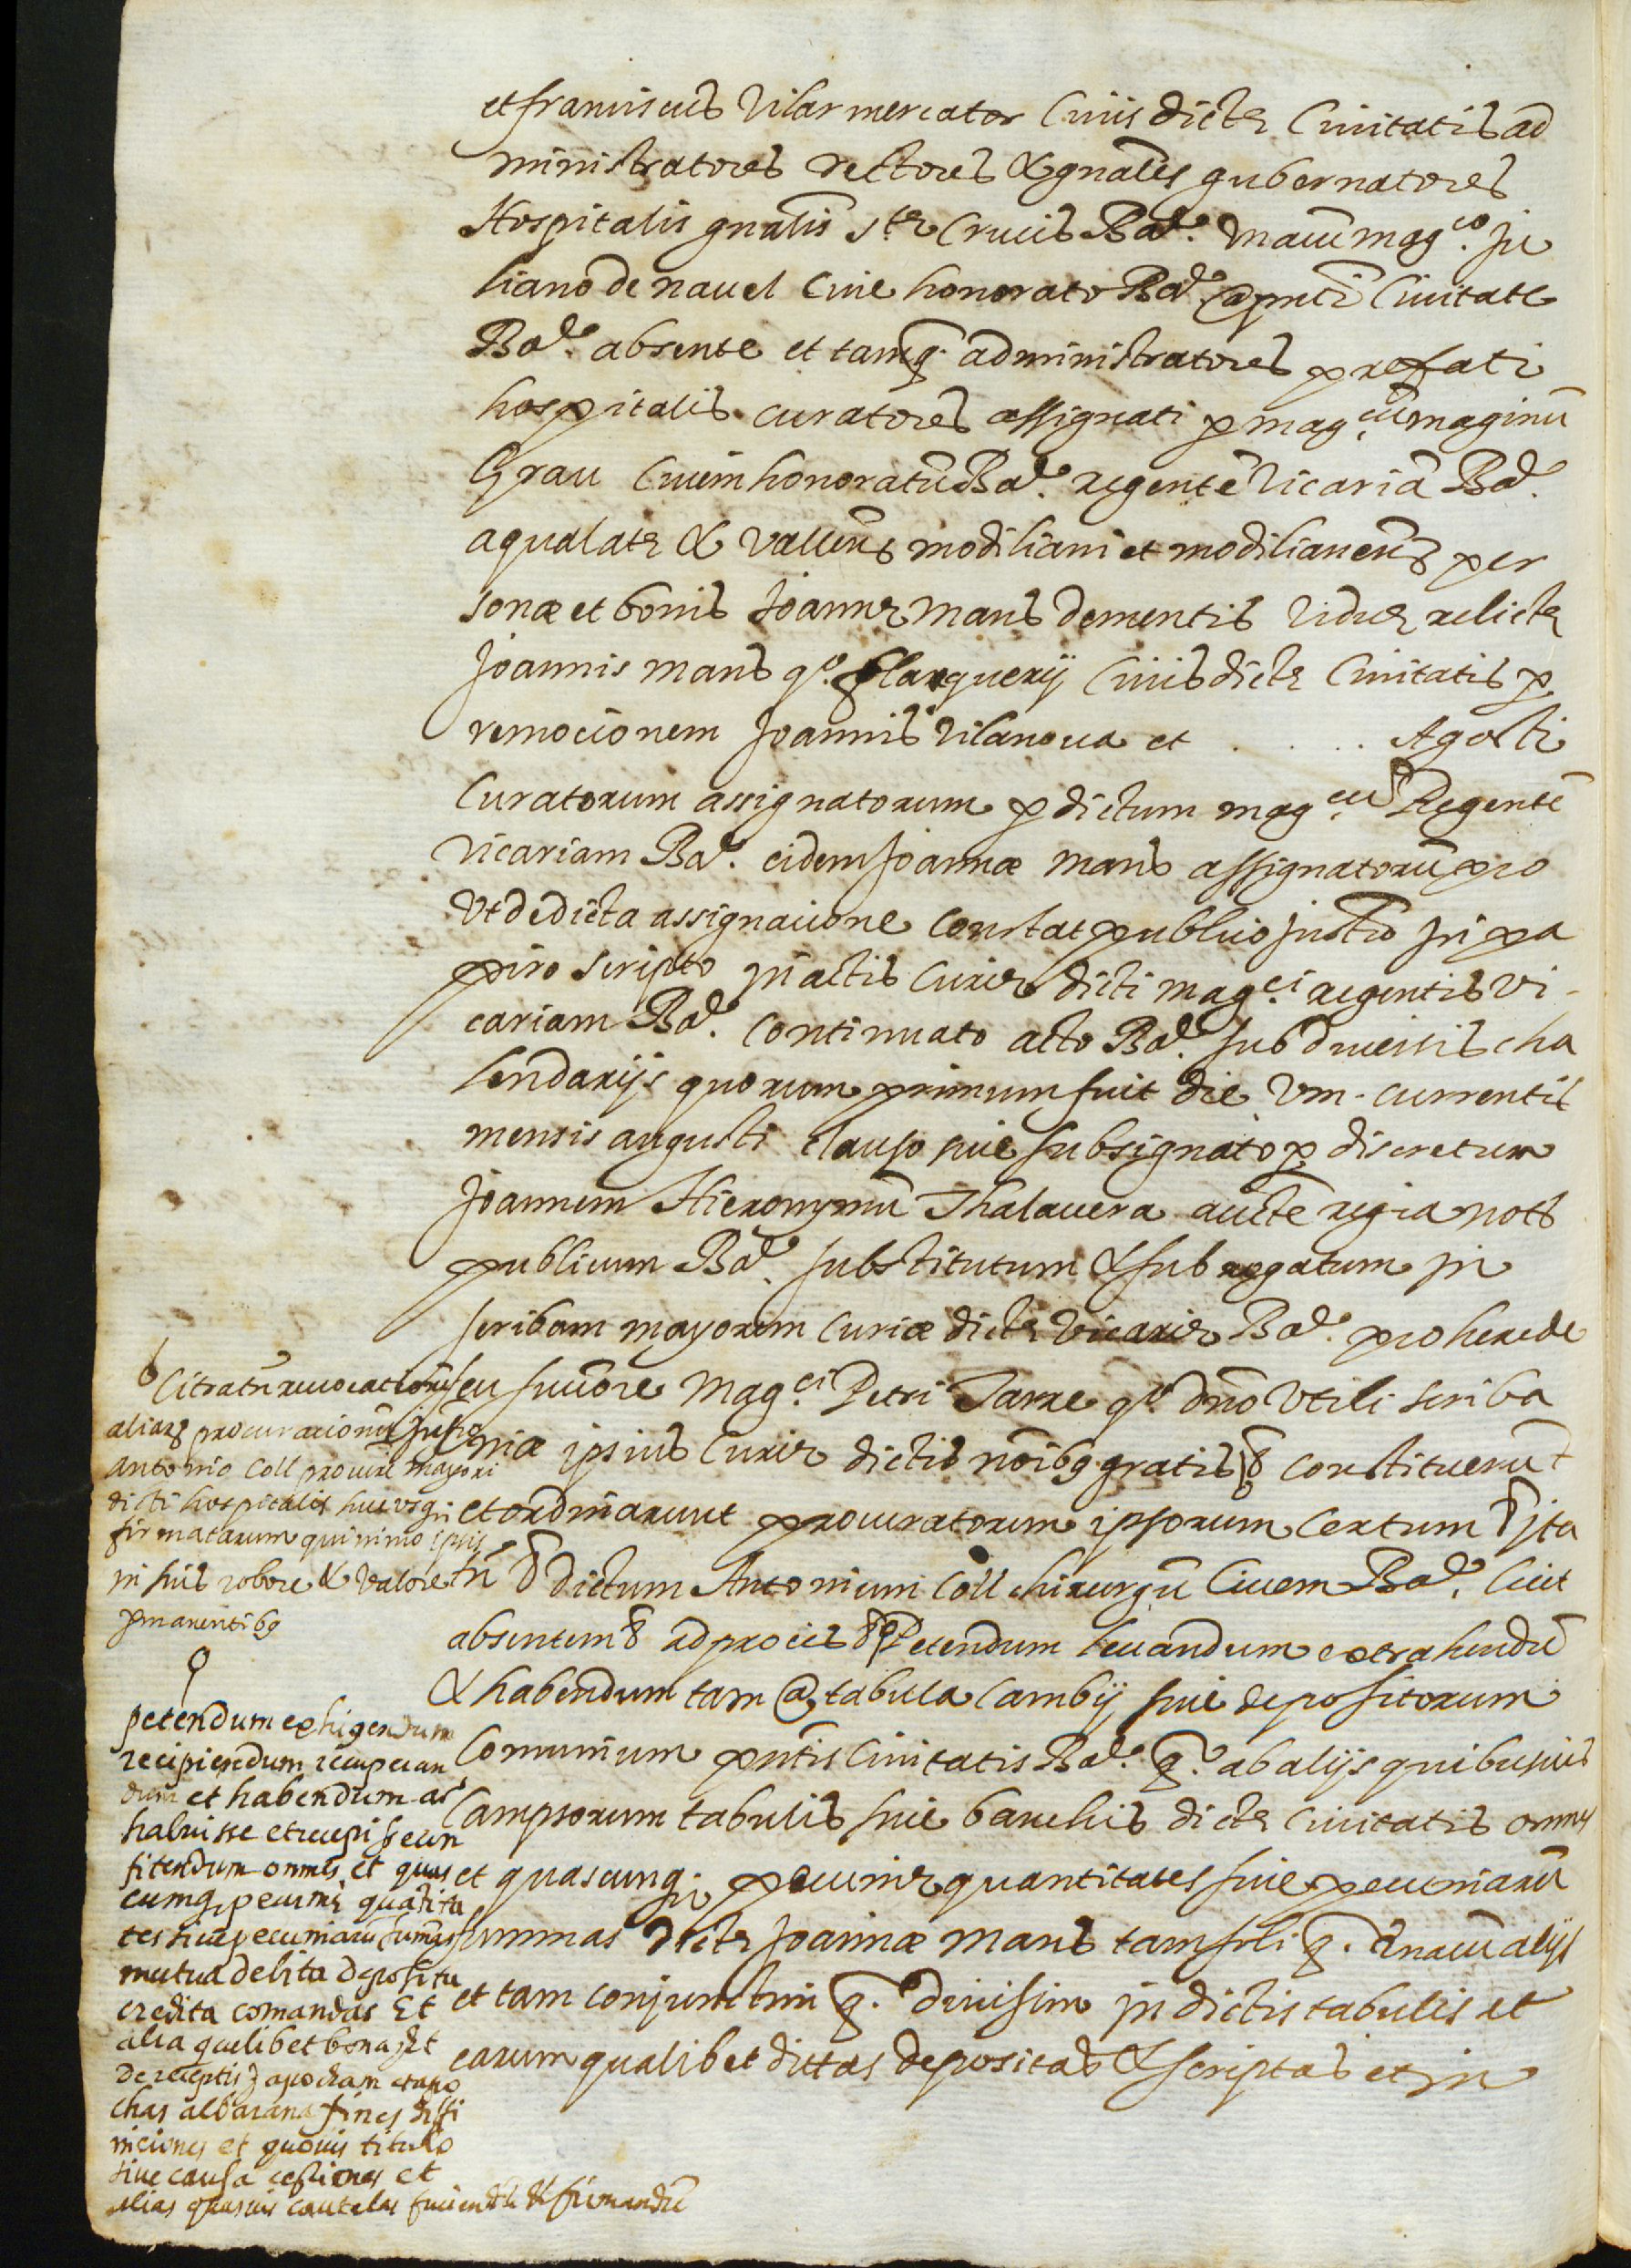 et franciscus Vilar mercator Civis dictę Civitatis ad
ministratores rectores & gnales gubernatores
Hospitalis gnalis stę Crucis Bar. una cum magco. Ju
liano de navel Cive honorato Bar. a pnti Civitate
Bar. absente et tamq. administratores prefati
hospitalis curatores assignati p magcum maginu
Grau Civem honoratu Bar. regente Vicaria Bar.
aqualatę & vallens modiliani et modilianens per
sonæ et bonis Joannę Mans dementis viduę relictę
Joannis Mans qo. flasquerij Civis dictę Civitatis p
remocionem Joannis Vilanova et . . . . Agosti
Curatorum assignatorum p dictum magcu Regente
Vicariam Bar. eidem Joannæ Mans assignatoru pro
Ut de dicta assignacione constat publico instro in pa
piro scripto in actis Curię dicti magci. regentis vi-
cariam Bar. continuato acto Bar. sub diversis cha
lendarijs quorum primum fuit die vm. currentis
mensis augusti clauso sive subsignato p discretum
Joannem Hieronymu Thalavera aucte regia nots
publicum Bar. substitutum & subrogatum in
scribam mayorem Curiæ dictę Vicarię Bar. pro herede
seu succore magci. Petri Tarre qo. dno Utili scriba
niæ ipsius Curię dictis noibg gratis & constituerut
et ordinarunt procuratorem ipsorum Certum & ita
tn & dictum Antonium Coll chirurgu Civem Bar. licet
absentem & ad procis & petendum levandum extrahendu
& habendum tam a tabula Cambij sive depositorum
Comunium pntis Civitatis Bar. q. ab alijs quibusvis
Campsorum tabulis sive banchis dictę Civitatis omnes
et quascunq. pecunię quantitates sive pecuniaru
summas dictę Joannæ Mans tam soli q. una cu alijs
et tam conjunctim q. divisim in dictis tabulis et
earum qualibet dittas depositas & scriptas et in
Citra tn revocationes
aliarȝ procurationu instro
antonio Coll procuri mayori
dicti hospitalis hucusq.
firmatarum quinimo ipsis
in suis robore & valore
pmanentibg
petendum exhigendum
recipiendum recuperan
dum et habendum ac
habuisse et recepisse con
fitendum omnes et quas
cumq. pecunię quatita
tes sive pecuniaru sumas
mutua debita deposita
credita comandas Et
alia quelibet bona Et
de receptis apocham et apo
chas albarana fines diffi
niciones et quovis titulo
sive causa cessiones et
alias quasvis cautelas faciendu & firmandu